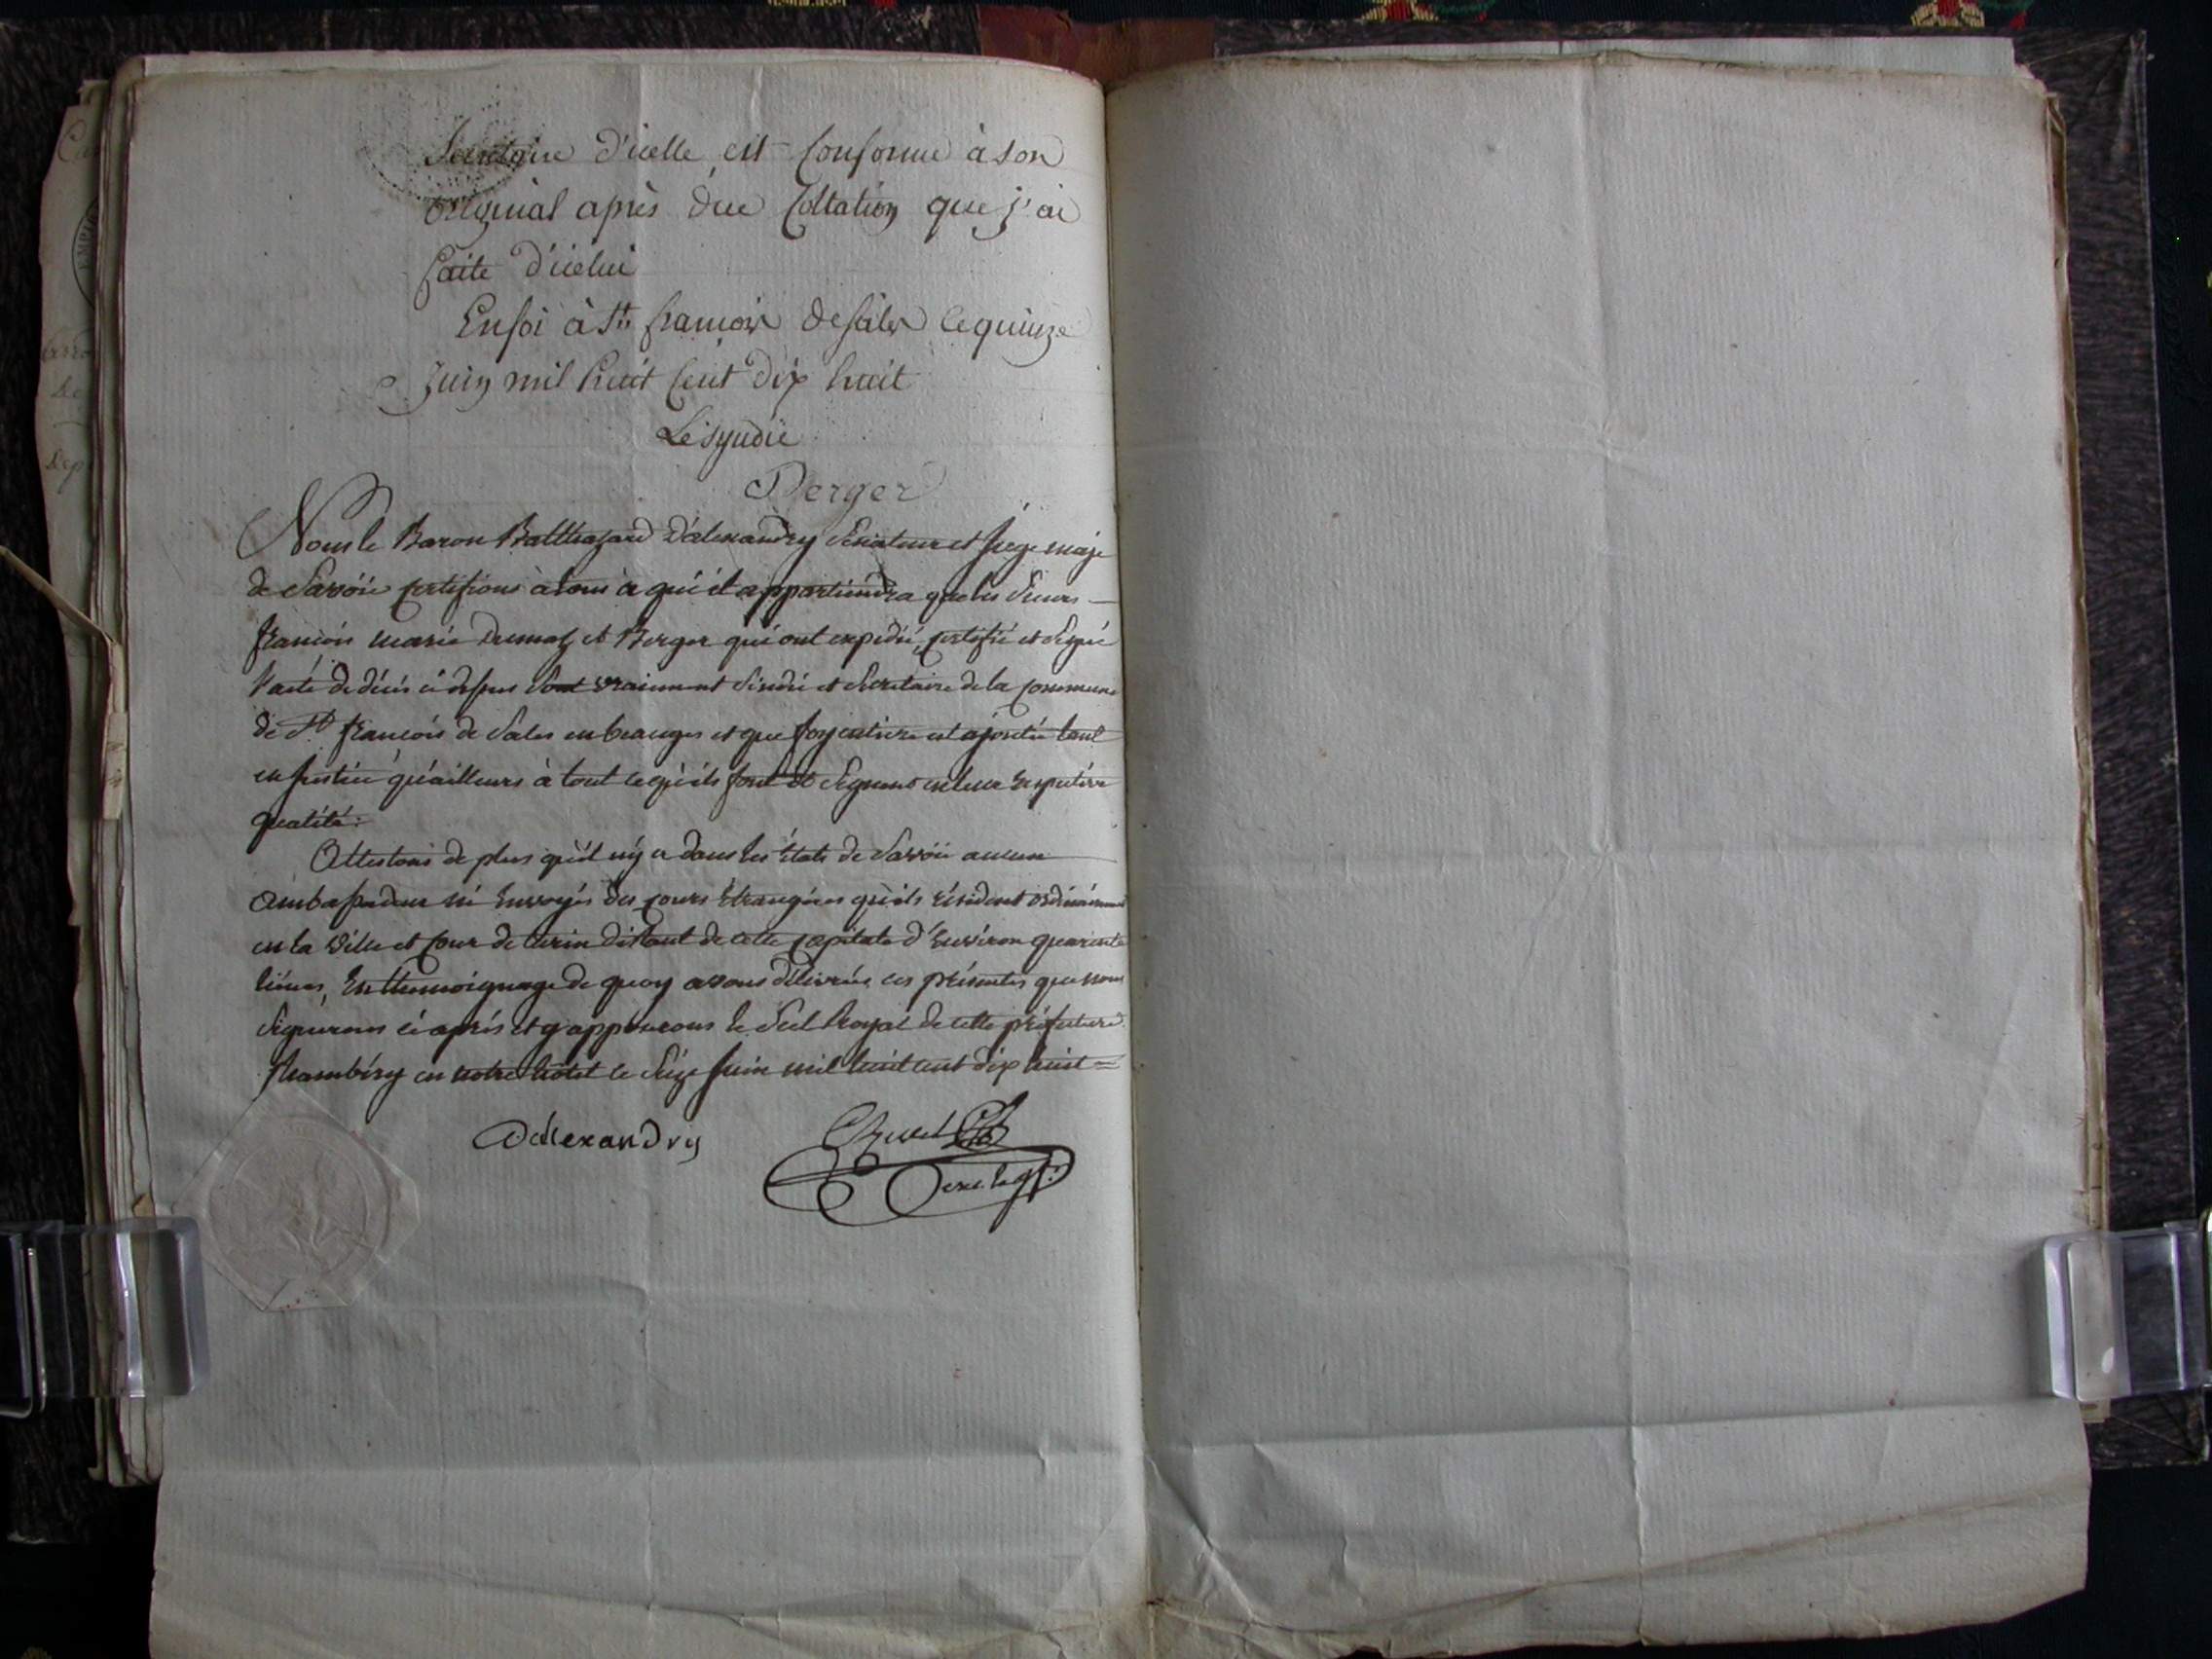 Secretaire d'icelle est Conforme à son
original après due Coltation que j'ai
faite d'icelui
En foi à St francois de sales le quinze
Juin mil huit Cent dix huit
Le syndic
Berger
Nous le Baron Balthazard D'alexandry Senateur et Juge maje
de Savoie certifions à tous à qui il appartiendra que les Sieurs
francois marie Dumaz et Berger qui ont expedié, certifié et Signé
l'acte de décés ci dessus Sont vraiment Sindic et Secretaire de la commune
de St francois de Sales en beauges et que foy entiere est ajoutée tant
en Justice qu'ailleurs à tout ce qu'ils font et Signent en leur respective
qualité:
Attestons de plus qu'il n'y a dans les états de Savoie aucun
ambassadeur ni Envoyés des cours Etrangéres qu'ils résident ordinairement
en la ville et cour de turin distant de cette capitale d'Environ quarante
lieues, En themoignage de quoy avons délivrées ces présentes que nous
Signerons ci aprés et y apposerons le Scel Royal de cette préfecture
Chambéry en notre hôtel le Seize Juin mil huit cent dix huit =
Dalexandry